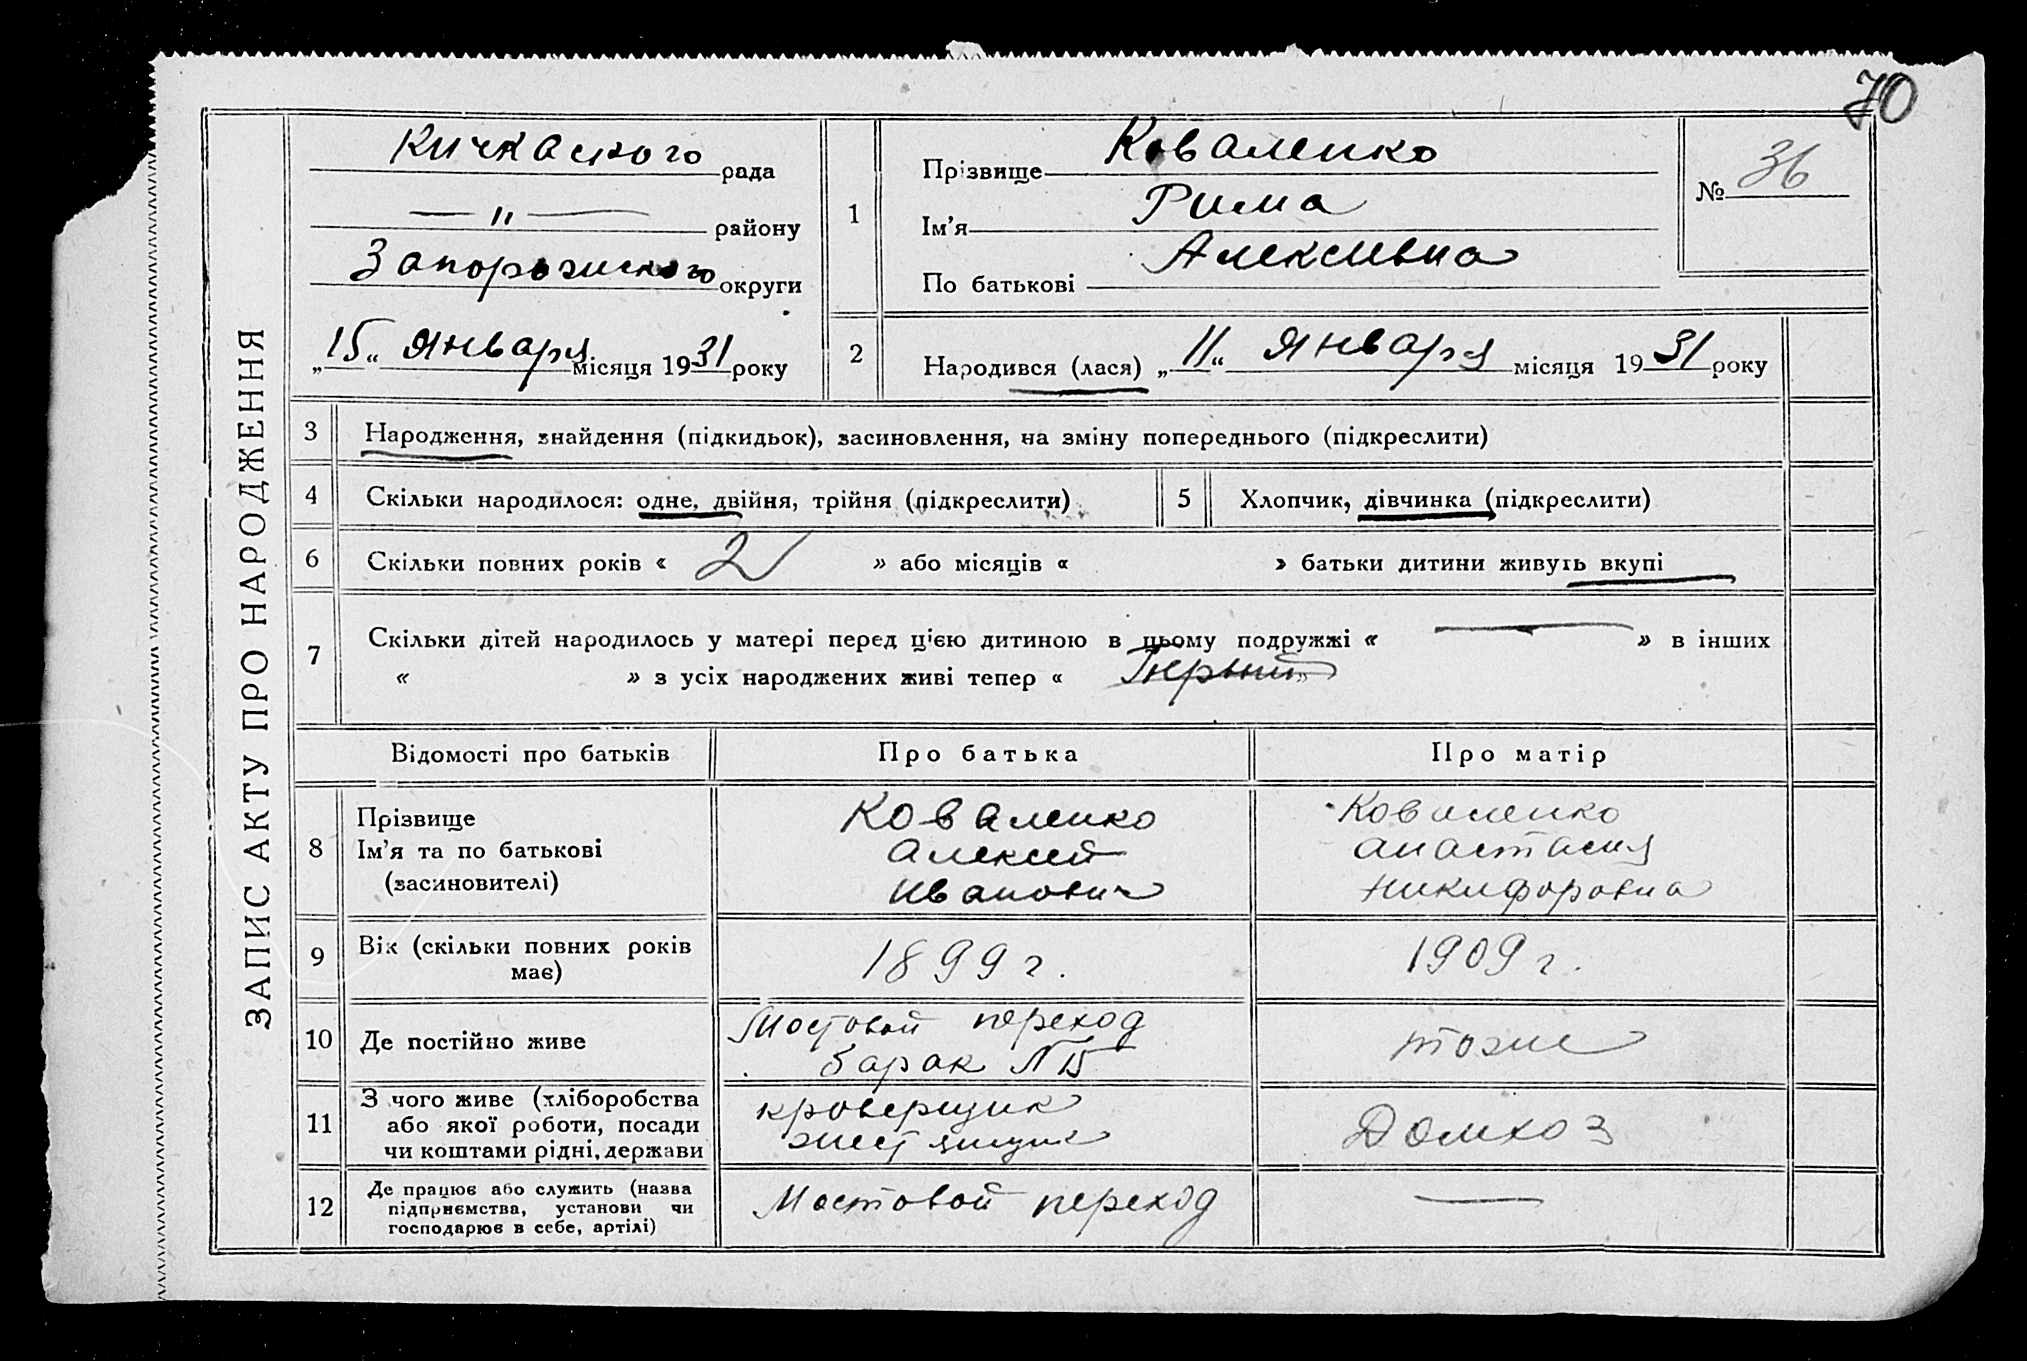 70
ЗАПИС АКТУ ПРО НАРОДЖЕННЯ
Кичкаского рада
— " — району
Запорожского округи
„15“ января місяця 1931 року
1
Прізвище Коваленко
Ім’я Рима
По батькові Алексевна
№ 36
2
Народився (лася) „11“ января місяця 1931 року
3 Народження, знайдення (підкидьок), засиновлення, на зміну попереднього (підкреслити)
4 Скільки народилося: одне, двійня, трійня (підкреслити)
5 Хлопчик, дівчинка (підкреслити)
6 Скільки повних років « 2 » або місяців « » батьки дитини живуть вкупі
7 Скільки дітей народилось у матері перед цією дитиною в цьому подружжі « — » в інших
« » з усіх народжених живі тепер « »
Відомості про батьків Про батька Про матір
8 Прізвище
Ім’я та по батькові
(засиновителі)
Коваленко
Алексей
Иванович
Коваленко
Анастасия
Никифоровна
9 Вік (скільки повних років
має)
1899 г.
1909 г.
10 Де постійно живе
Мостовой переход
барак №
тоже
11 З чого живе (хліборобства
або якої роботи, посади
чи коштами рідні, держави
кроверщик
жестянщик
Домхоз
12 Де працює або служить (назва
підприємства, установи чи
господарює в себе, артілі)
Мостовой переход
—